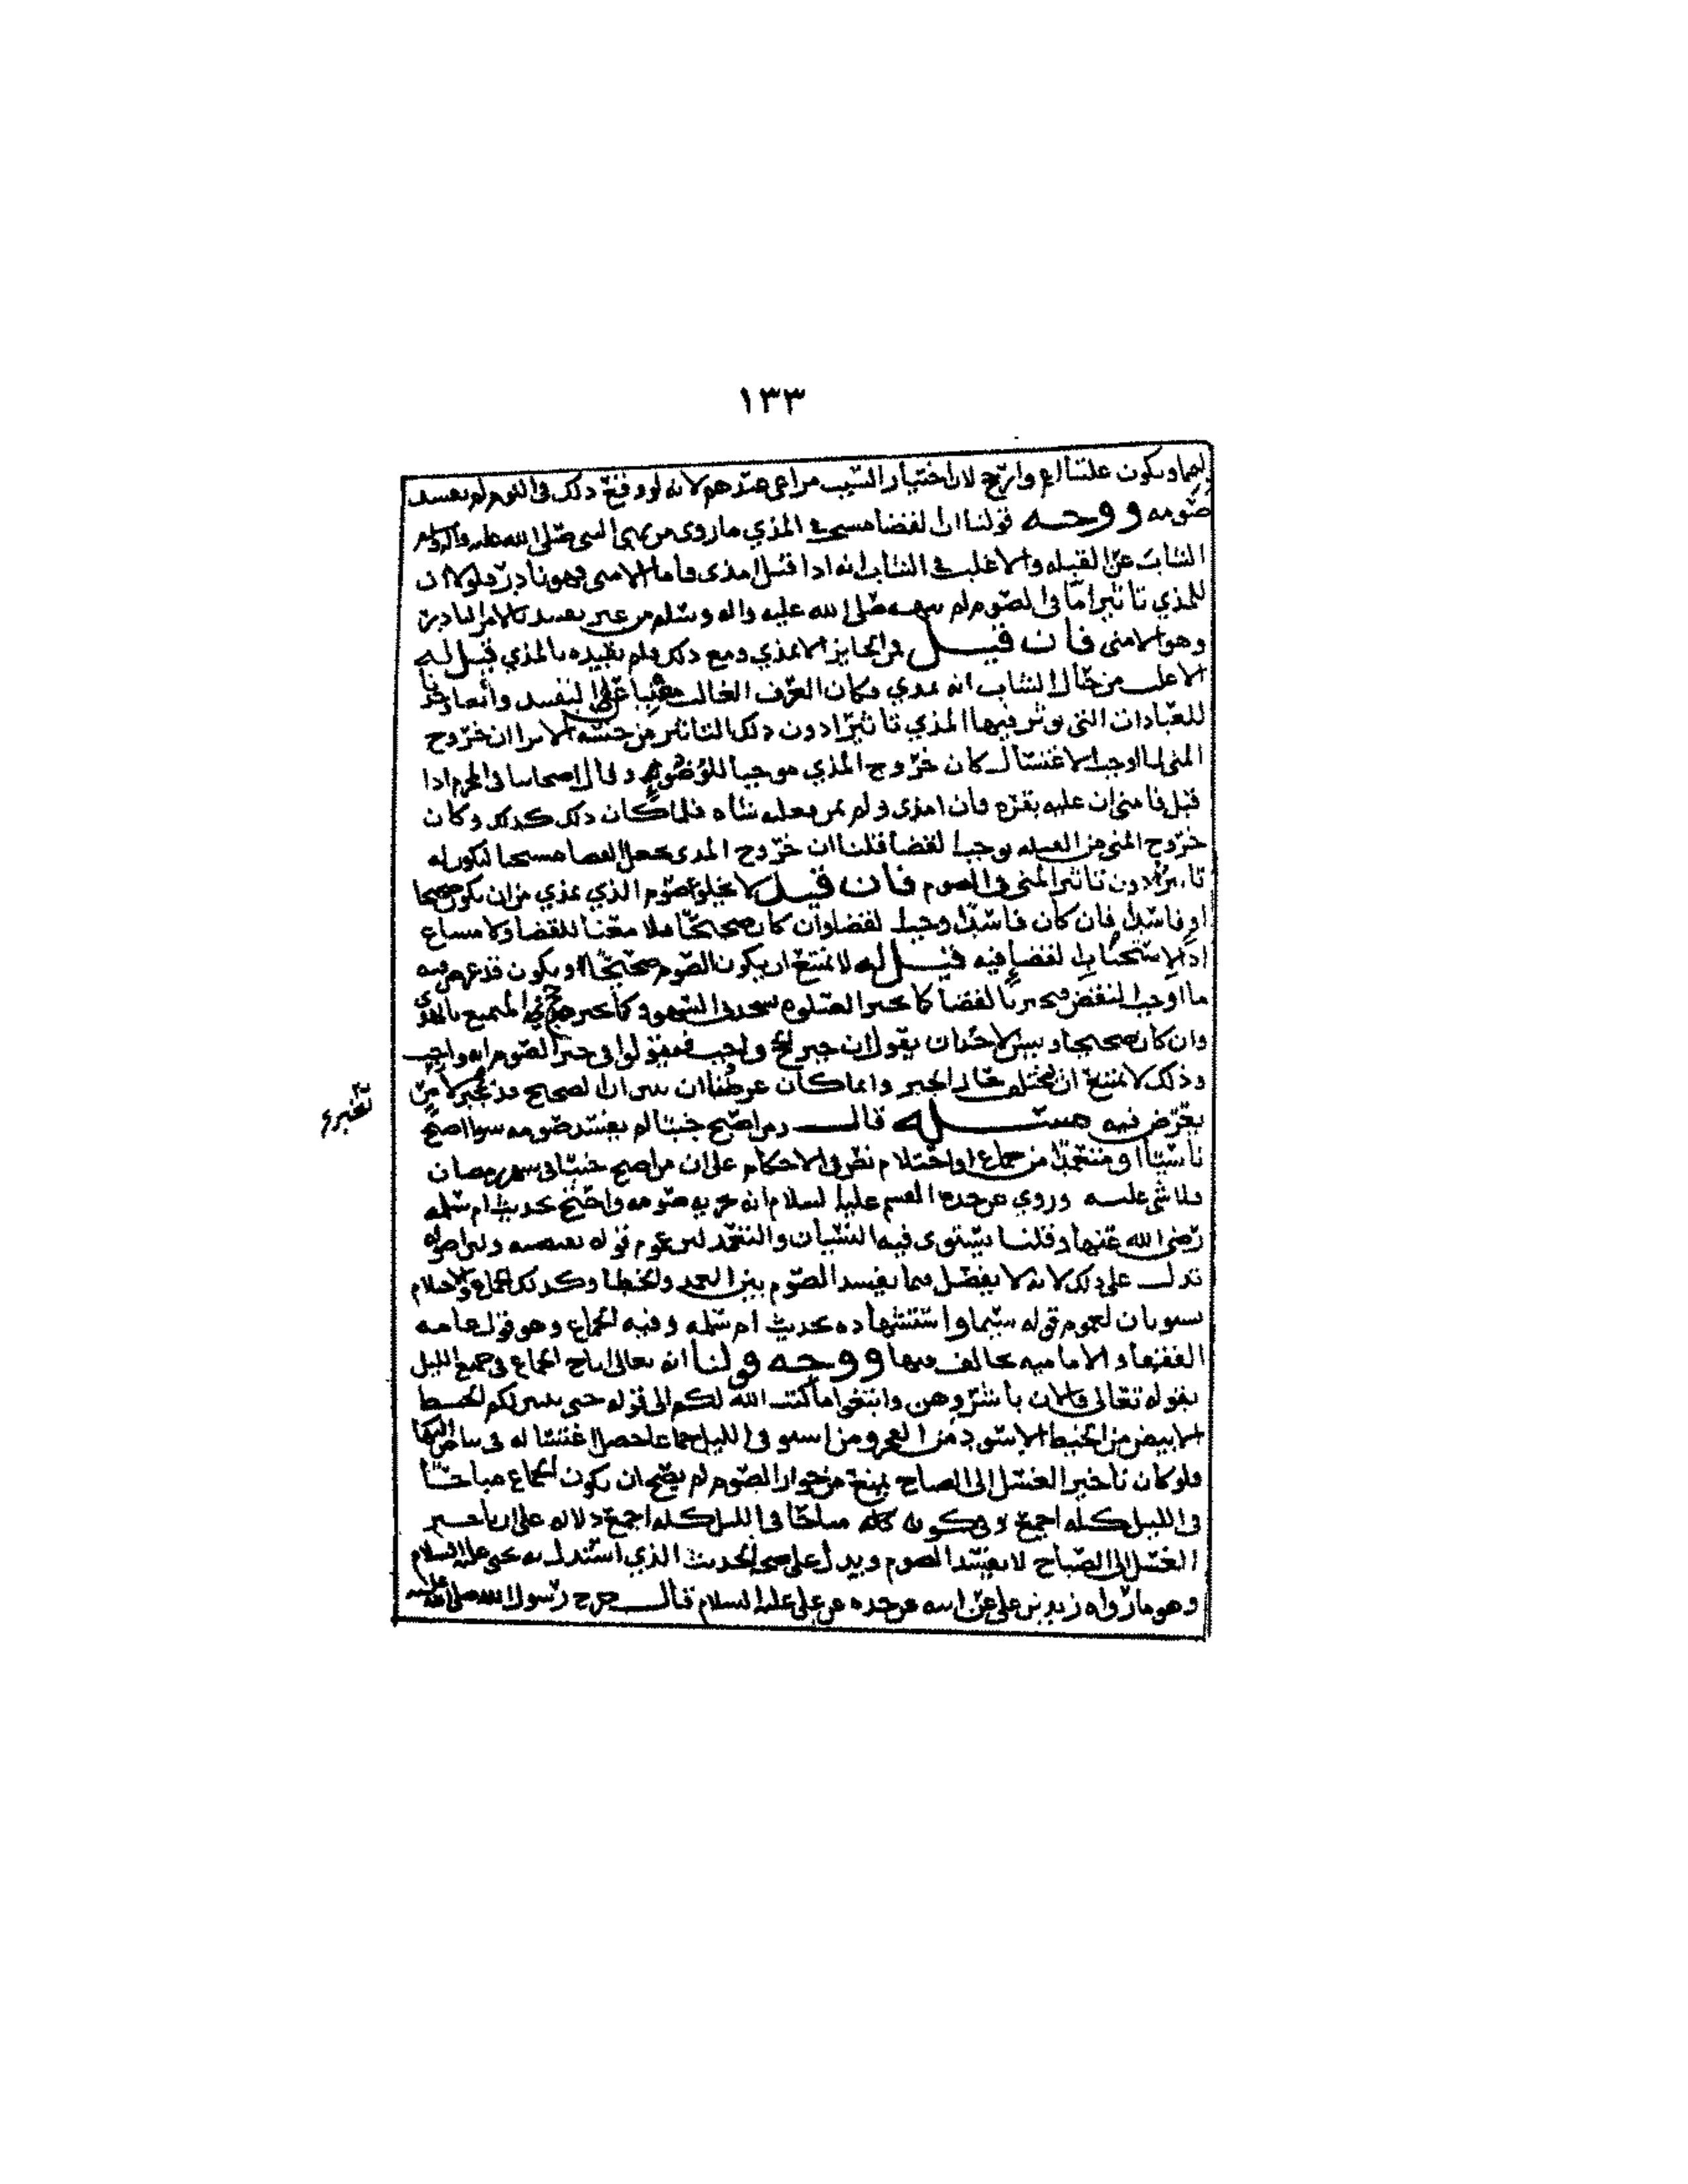 ١٣٣
ويكون علتنا اعم وارجح لان اختيار السبب مراعى عندهم لانه لو وقع ذلك في النوم لم يفسد
صومه ووجه قولنا ان القضا مستحب في المذي ما روي من نهي النبي صلى الله عليه واله وسلم
الشاب عن القبله والاغلب في الشاب انه اذا قبل امذى فاما الامنى فهو نادر فلولا ان
للمذي تاثيرا ما في الصوم لم ينهه صلى الله عليه واله وسلم من غير تقييد بالامر النادر
وهو الامنى فان قيل فمن الجايز الا يمذي ومع ذلك فلم تقييده بالمذي قيل له
الاغلب من حال الشاب انه يمذي وكان العرف الغالب التقييد وايضا وجدنا
للعبادات التي يوثر فيها المني تاثيرا يوثر فيها المذي تاثيرا دون ذلك التاثير من جنسه الا ترا ان خروج
المني لما اوجب الاغتسال كان خروج المذي موجبا للوضو وقال اصحابنا في المحرم اذا
قبل فامنى ان عليه بقره فان امذى ولم يمن فعليه شاه فلما كان ذلك كذلك وكان
خروج المني من القبله يوجب القضا قلنا ان خروج المذي يجعل القضا مستحبا ليكون له
تاثيرا دون تاثير المني في الصوم فان قيل لا يخلو صوم الذي يمذي من ان يكون صحيحا
او فاسدا فان كان فاسدا وجب القضا وان كان صحيحا فلا معنا للقضا ولا مساغ
اذا لاستحباب القضا فيه قيل له لا يمتنع ان يكون الصوم صحيحا ويكون قد عرض فيه
ما اوجب النقض فيجبر بالقضا كما تجبر الصلوه بسجدتي السهو وكما يجبر حج المتمتع بالهدي
وان كان صحيحا وليس لاحد ان يقول ان جبر الحج واجب فقولوا في جبر الصوم انه واجب
وذلك لا يمتنع ان يختلف حال الجبر وانما كان غرضنا ان نبين ان الصحيح قد يجبر لامر
تجبره
يعرض فيه مسئله قال ومن اصبح جنبا لم يفسد صومه سوا اصبح
ناسيا او متعمدا من جماع او احتلام نص في الاحكام على ان من اصبح جنبا في شهر رمضان
فلا شي عليه وروي عن جده القسم عليه السلام انه يجزيه صومه واحتج بحديث ام سلمه
رضي الله عنها وقلنا يستوي فيه النسيان والتعمد لان عموم قوله يقتضيه ولان اصوله
تدل على ذلك لانه لا يفصل فيما يفسد الصوم بين العمد والخطا وكذلك الجماع والاحتلام
يستويان لعموم قوله سيما واستشهاده بحديث ام سلمه وفيه الجماع وهو قول عامه
الفقها والاماميه تخالف فيها ووجه قولنا انه تعالى اباح الجماع في جميع الليل
بقوله تعالى فالان باشروهن وابتغوا ما كتب الله لكم الى قوله حتى يتبين لكم الخيط
الابيض من الخيط الاسود من الفجر ومن استوفى الليل جماعا حصل اغتساله في بياض النهار
فلو كان تاخير الغسل الى الصباح يمنع من جواز الصوم لم يصح ان يكون الجماع مباحا
في الليل كله اجمع وفي كونه مباحا في الليل كله اجمع دلاله على ان تاخير
الغسل الى الصباح لا يفسد الصوم ويدل على صحه الحديث الذي استدل به يحيى عليه السلام
وهو ما رواه زيد بن علي عن ابيه عن جده عن علي عليه السلام قال خرج رسول الله صلى الله عليه